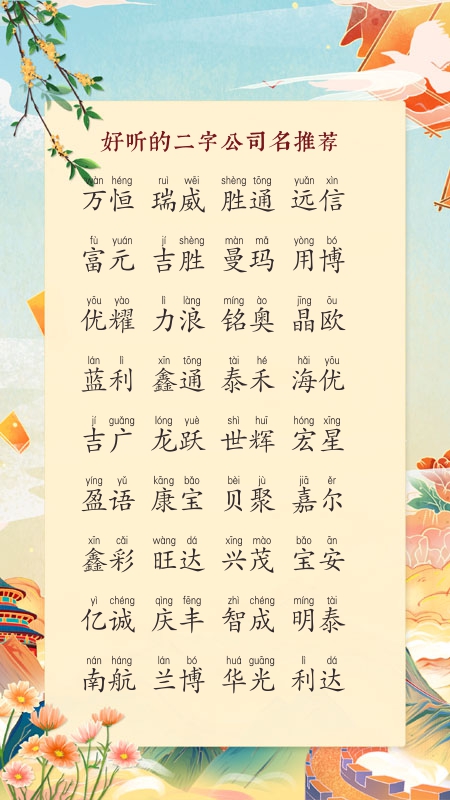 好听的二字公司名推荐
wàn héng ruì wēi shèng tōng yuǎn xìn
万恒 瑞威 胜通 远信
fù yuán jí shèng màn mǎ yòng bó
富元 吉胜 曼玛 用博
yōu yào lì làng míng ào jīng ōu
优耀 力浪 铭奥 晶欧
lán lì xīn tōng tài hé hǎi yōu
蓝利 鑫通 泰禾 海优
jí guǎng lóng yuè shì huī hóng xīng
吉广 龙跃 世辉 宏星
yíng yǔ kāng bǎo bèi jù jiā ěr
盈语 康宝 贝聚 嘉尔
xīn cǎi wàng dá xīng mào bǎo ān
鑫彩 旺达 兴茂 宝安
yì chéng qìng fēng zhì chéng míng tài
亿诚 庆丰 智成 明泰
nán háng lán bó huá guāng lì dá
南航 兰博 华光 利达